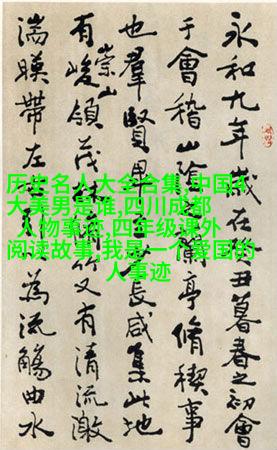 永和九年歲在丑暮春之初會
于會稽山陰蘭亭脩稧事
也羣賢畢長咸集此地
有崇山峻領茂林竹又有清流激
湍暎帶左為流觴曲水
历史名人大全合集,中国4
大美男是谁,四川成都
人物事迹,四年级课外
阅读故事,我是一个爱国的
人事迹